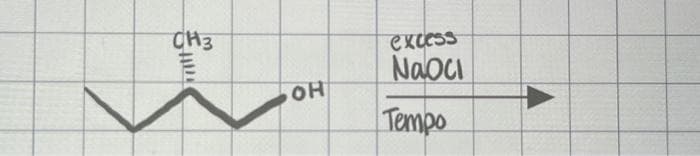 CH3
OH
excess
NaOCl
Tempo